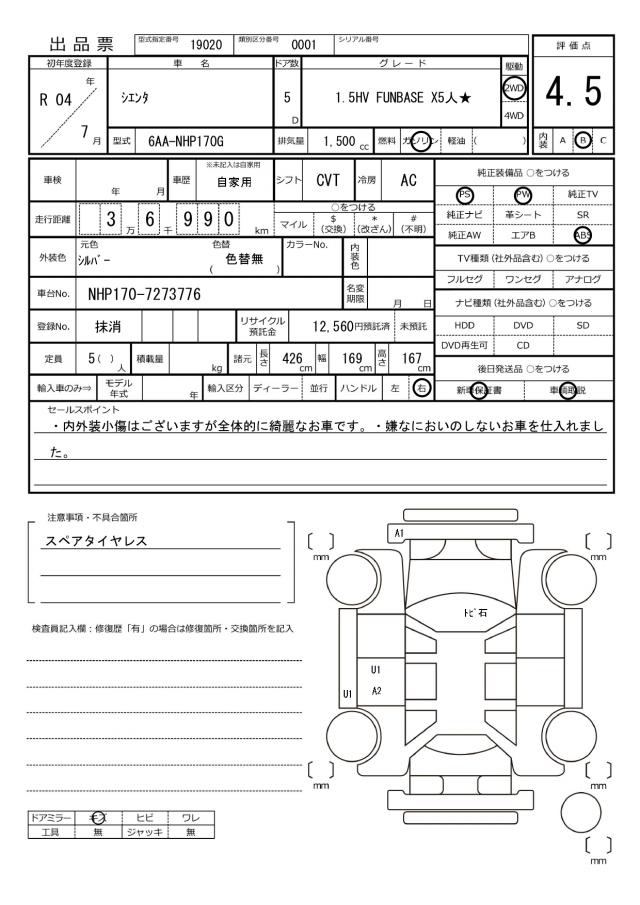 出品票 型式指定番号 19020 類別区分番号 0001 シリアル番号
評価点
4.5
内装 A B C
初年度登録 車名 ドア数 グレード 駆動
R 04 年 7 月 シエンタ 5 D 1.5HV FUNBASE X5人★ 2WD 4WD
型式 6AA-NHP170G 排気量 1,500 cc 燃料 ガソリン 軽油 ( )
車検 年 月 車歴 ※未記入は自家用 自家用 シフト CVT 冷房 AC
走行距離 3 万 6 千 9 9 0 km ○をつける
マイル $(交換) *(改ざん) #(不明)
外装色 元色 シルバー 色替 ( 色替無 ) カラーNo. 内装色
車台No. NHP170-7273776 名変期限 月 日
登録No. 抹消 リサイクル預託金 12,560円預託済 未預託
定員 5( ) 人 積載量 kg 諸元 長さ 426 cm 幅 169 cm 高さ 167 cm
輸入車のみ⇒ モデル年式 年 輸入区分 ディーラー 並行 ハンドル 左 右
純正装備品 ○をつける
PS PW 純正TV
純正ナビ 革シート SR
純正AW エアB ABS
TV種類 (社外品含む) ○をつける
フルセグ ワンセグ アナログ
ナビ種類 (社外品含む) ○をつける
HDD DVD SD
DVD再生可 CD
後日発送品 ○をつける
新車保証書 車輌取説
セールスポイント
・内外装小傷はございますが全体的に綺麗なお車です。・嫌なにおいのしないお車を仕入れまし
た。
注意事項・不具合箇所
スペアタイヤレス
検査員記入欄：修復歴「有」の場合は修復箇所・交換箇所を記入
A1
mm
mm
トビ石
U1
U1 A2
mm
mm
mm
ドアミラー キズ ヒビ ワレ
工具 無 ジャッキ 無